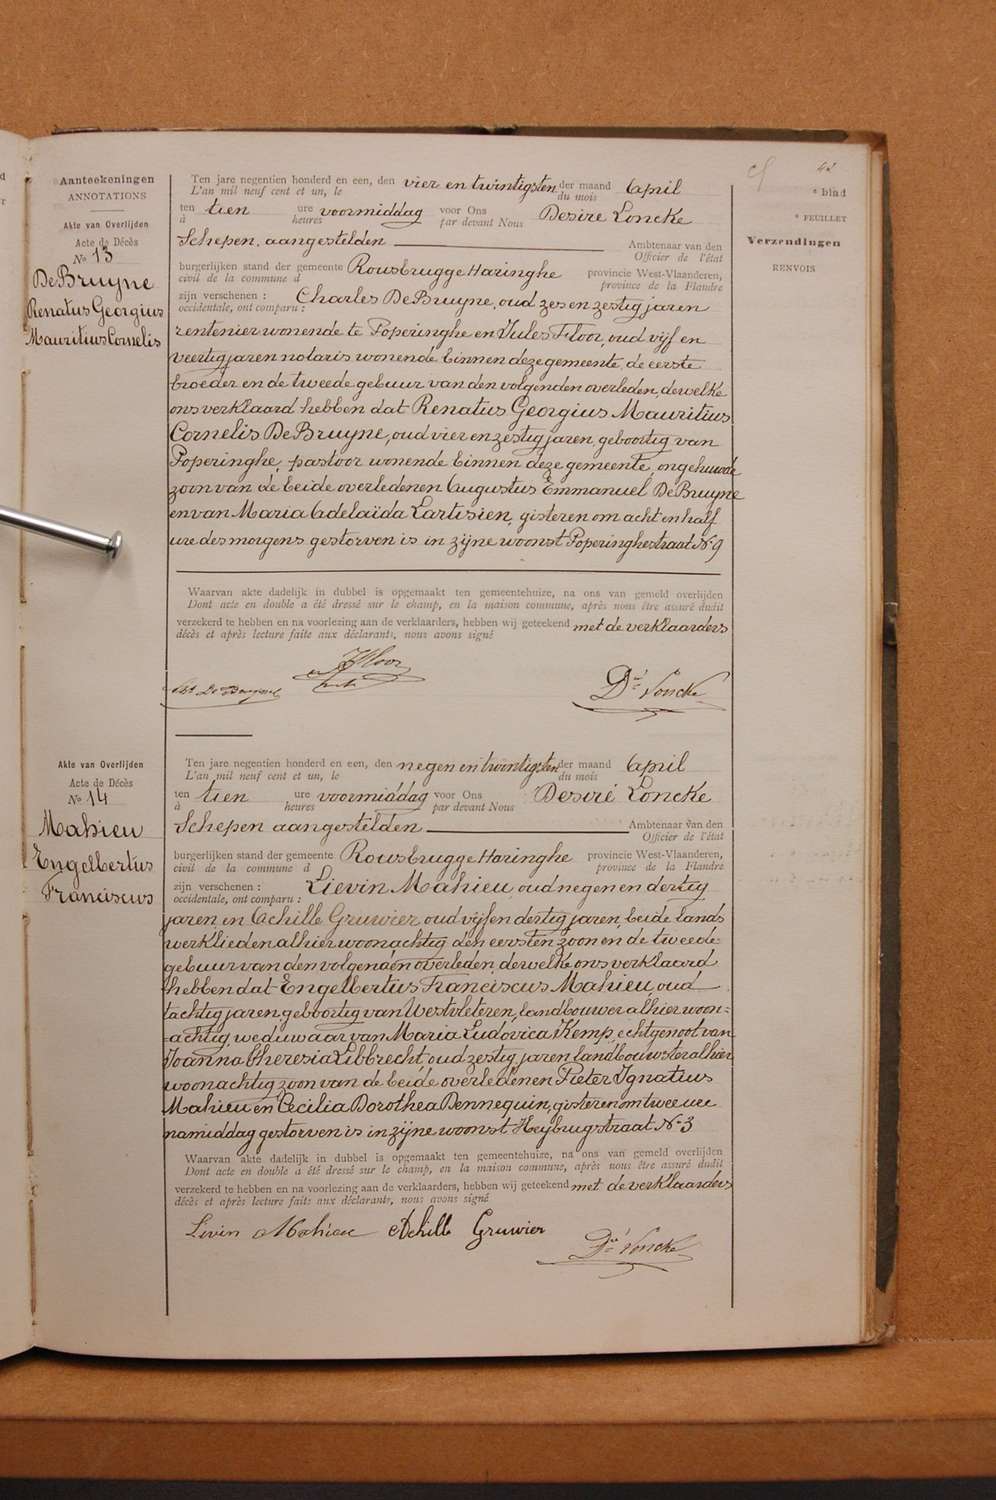 42
Aanteekeningen
ANNOTATIONS
blad
FEUILLET
Verzendingen
RENVOIS
Akte van Overlijden
Acte de Décès
No 13
De Bruyne
Renatus Georgius
Mauritius Cornelis
Ten jare negentien honderd en een, den vier en twintigsten der maand April
L'an mil neuf cent et un, le du mois
ten tien ure voormiddag voor Ons Desiré Loncke
à heures par devant Nous
Schepen, aangestelden Ambtenaar van den
Officier de l'état
burgerlijken stand der gemeente Rousbrugge Haringhe provincie West-Vlaanderen,
civil de la commune d province de la Flandre
zijn verschenen : Charles De Bruyne, oud zes en zestig jaren
occidentale, ont comparu :
rentenier wonende te Poperinghe en Jules Floor, oud vijf en
veertig jaren notaris wonende binnen deze gemeente, de eerste
broeder en de tweede gebuur van den volgenden overleden, dewelke
ons verklaard hebben dat Renatus Georgius Mauritius
Cornelis De Bruyne, oud vier en zestig jaren, geboortig van
Poperinghe, pastoor wonende binnen deze gemeente, ongehuwde
zoon van de beide overledenen Augustus Emmanuel De Bruyne
en van Maria Adelaïda Lartisien, gisteren om acht en half
ure des morgens gestorven is in zijne woonst Poperinghestraat No 9
Waarvan akte dadelijk in dubbel is opgemaakt ten gemeentehuize, na ons van gemeld overlijden
Dont acte en double a été dressé sur le champ, en la maison commune, après nous être assuré dudit
verzekerd te hebben en na voorlezing aan de verklaarders, hebben wij geteekend met de verklaarders
décès et après lecture faite aux déclarants, nous avons signé
De Bruyne JFloor Dé Loncke
Akte van Overlijden
Acte de Décès
No 14
Mahieu
Engelbertus
Franciscus
Ten jare negentien honderd en een, den negen en twintigsten der maand April
L'an mil neuf cent et un, le du mois
ten tien ure voormiddag voor Ons Desiré Loncke
à heures par devant Nous
Schepen aangestelden Ambtenaar van den
Officier de l'état
burgerlijken stand der gemeente Rousbrugge Haringhe provincie West-Vlaanderen,
civil de la commune d province de la Flandre
zijn verschenen : Lievin Mahieu, oud negen en dertig
occidentale, ont comparu :
jaren en Achille Gruwier, oud vijf en dertig jaren, beide lands
werklieden alhier woonachtig den eersten zoon en de tweede
gebuur van den volgenden overleden, dewelke ons verklaard
hebben dat Engelbertus Franciscus Mahieu, oud
tachtig jaren geboortig van Westvleteren, landbouwer alhier woon-
-achtig, weduwaar van Maria Ludovica Kemp, echtgenoot van
Joanna Theresia Libbrecht, oud zestig jaren, landbouwster alhier
woonachtig zoon van de beide overledenen Pieter Ignatius
Mahieu en Cecilia Dorothea Dennequin, gisteren om twee ure
namiddag gestorven is in zijne woonst Heybrugstraat No 3
Waarvan akte dadelijk in dubbel is opgemaakt ten gemeentehuize, na ons van gemeld overlijden
Dont acte en double a été dressé sur le champ, en la maison commune, après nous être assuré dudit
verzekerd te hebben en na voorlezing aan de verklaarders, hebben wij geteekend met de verklaarders
décès et après lecture faite aux déclarants, nous avons signé
Levin Mahieu Achille Gruwier
Dé Loncke